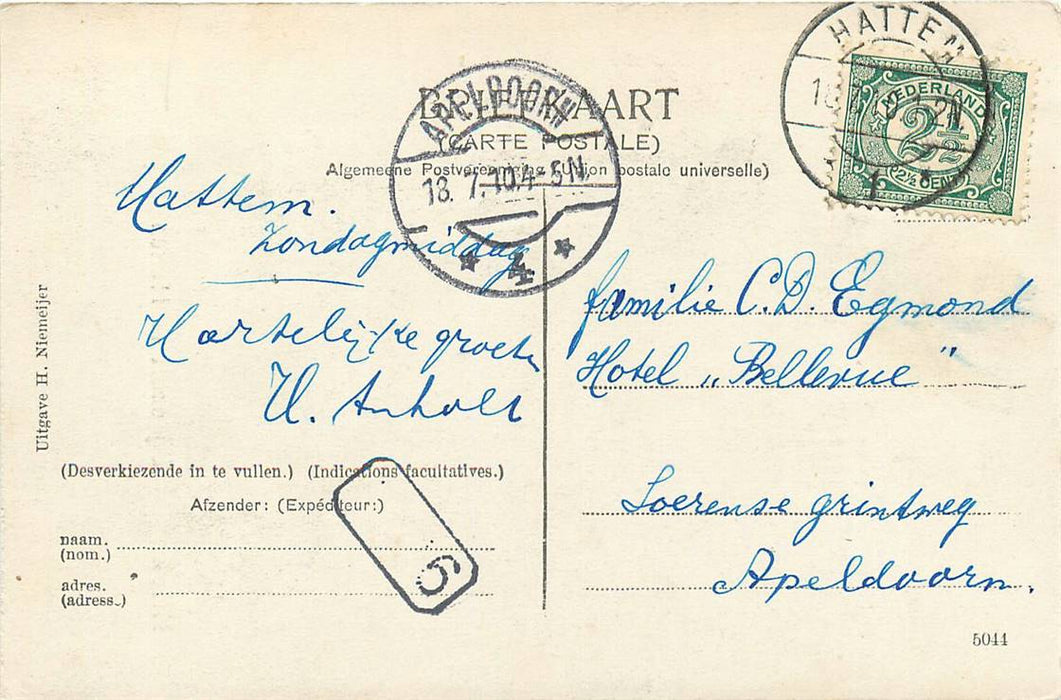 BRIEFKAART
(CARTE POSTALE)
Algemeene Postvereeniging (Union postale universelle)
HATTEM
1
NEDERLAND
2½
(2½ CENT)
APELDOORN
18. 7. 10. 4-5N.
4
Hattem.
Zondagmiddag
Hartelijke groeten
familie C.D. Egmond
Hotel „Bellevue"
Loerense grintweg
Apeldoorn.
Uitgave H. Niemeijer
(Desverkiezende in te vullen.) (Indications facultatives.)
Afzender: (Expéditeur:)
naam.
(nom.)
adres.
(adress.)
5044